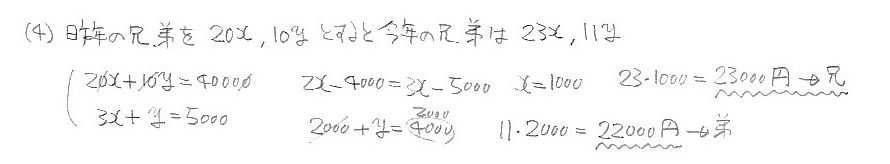 (4) 昨年の兄弟を 20x, 10y とすると今年の兄弟は 23x, 11y
20x+10y=40000 2x-4000=3x-5000 x=1000 23・1000=23000円→兄
3x+y=5000 2000+y=4000 2000 11・2000=22000円→弟